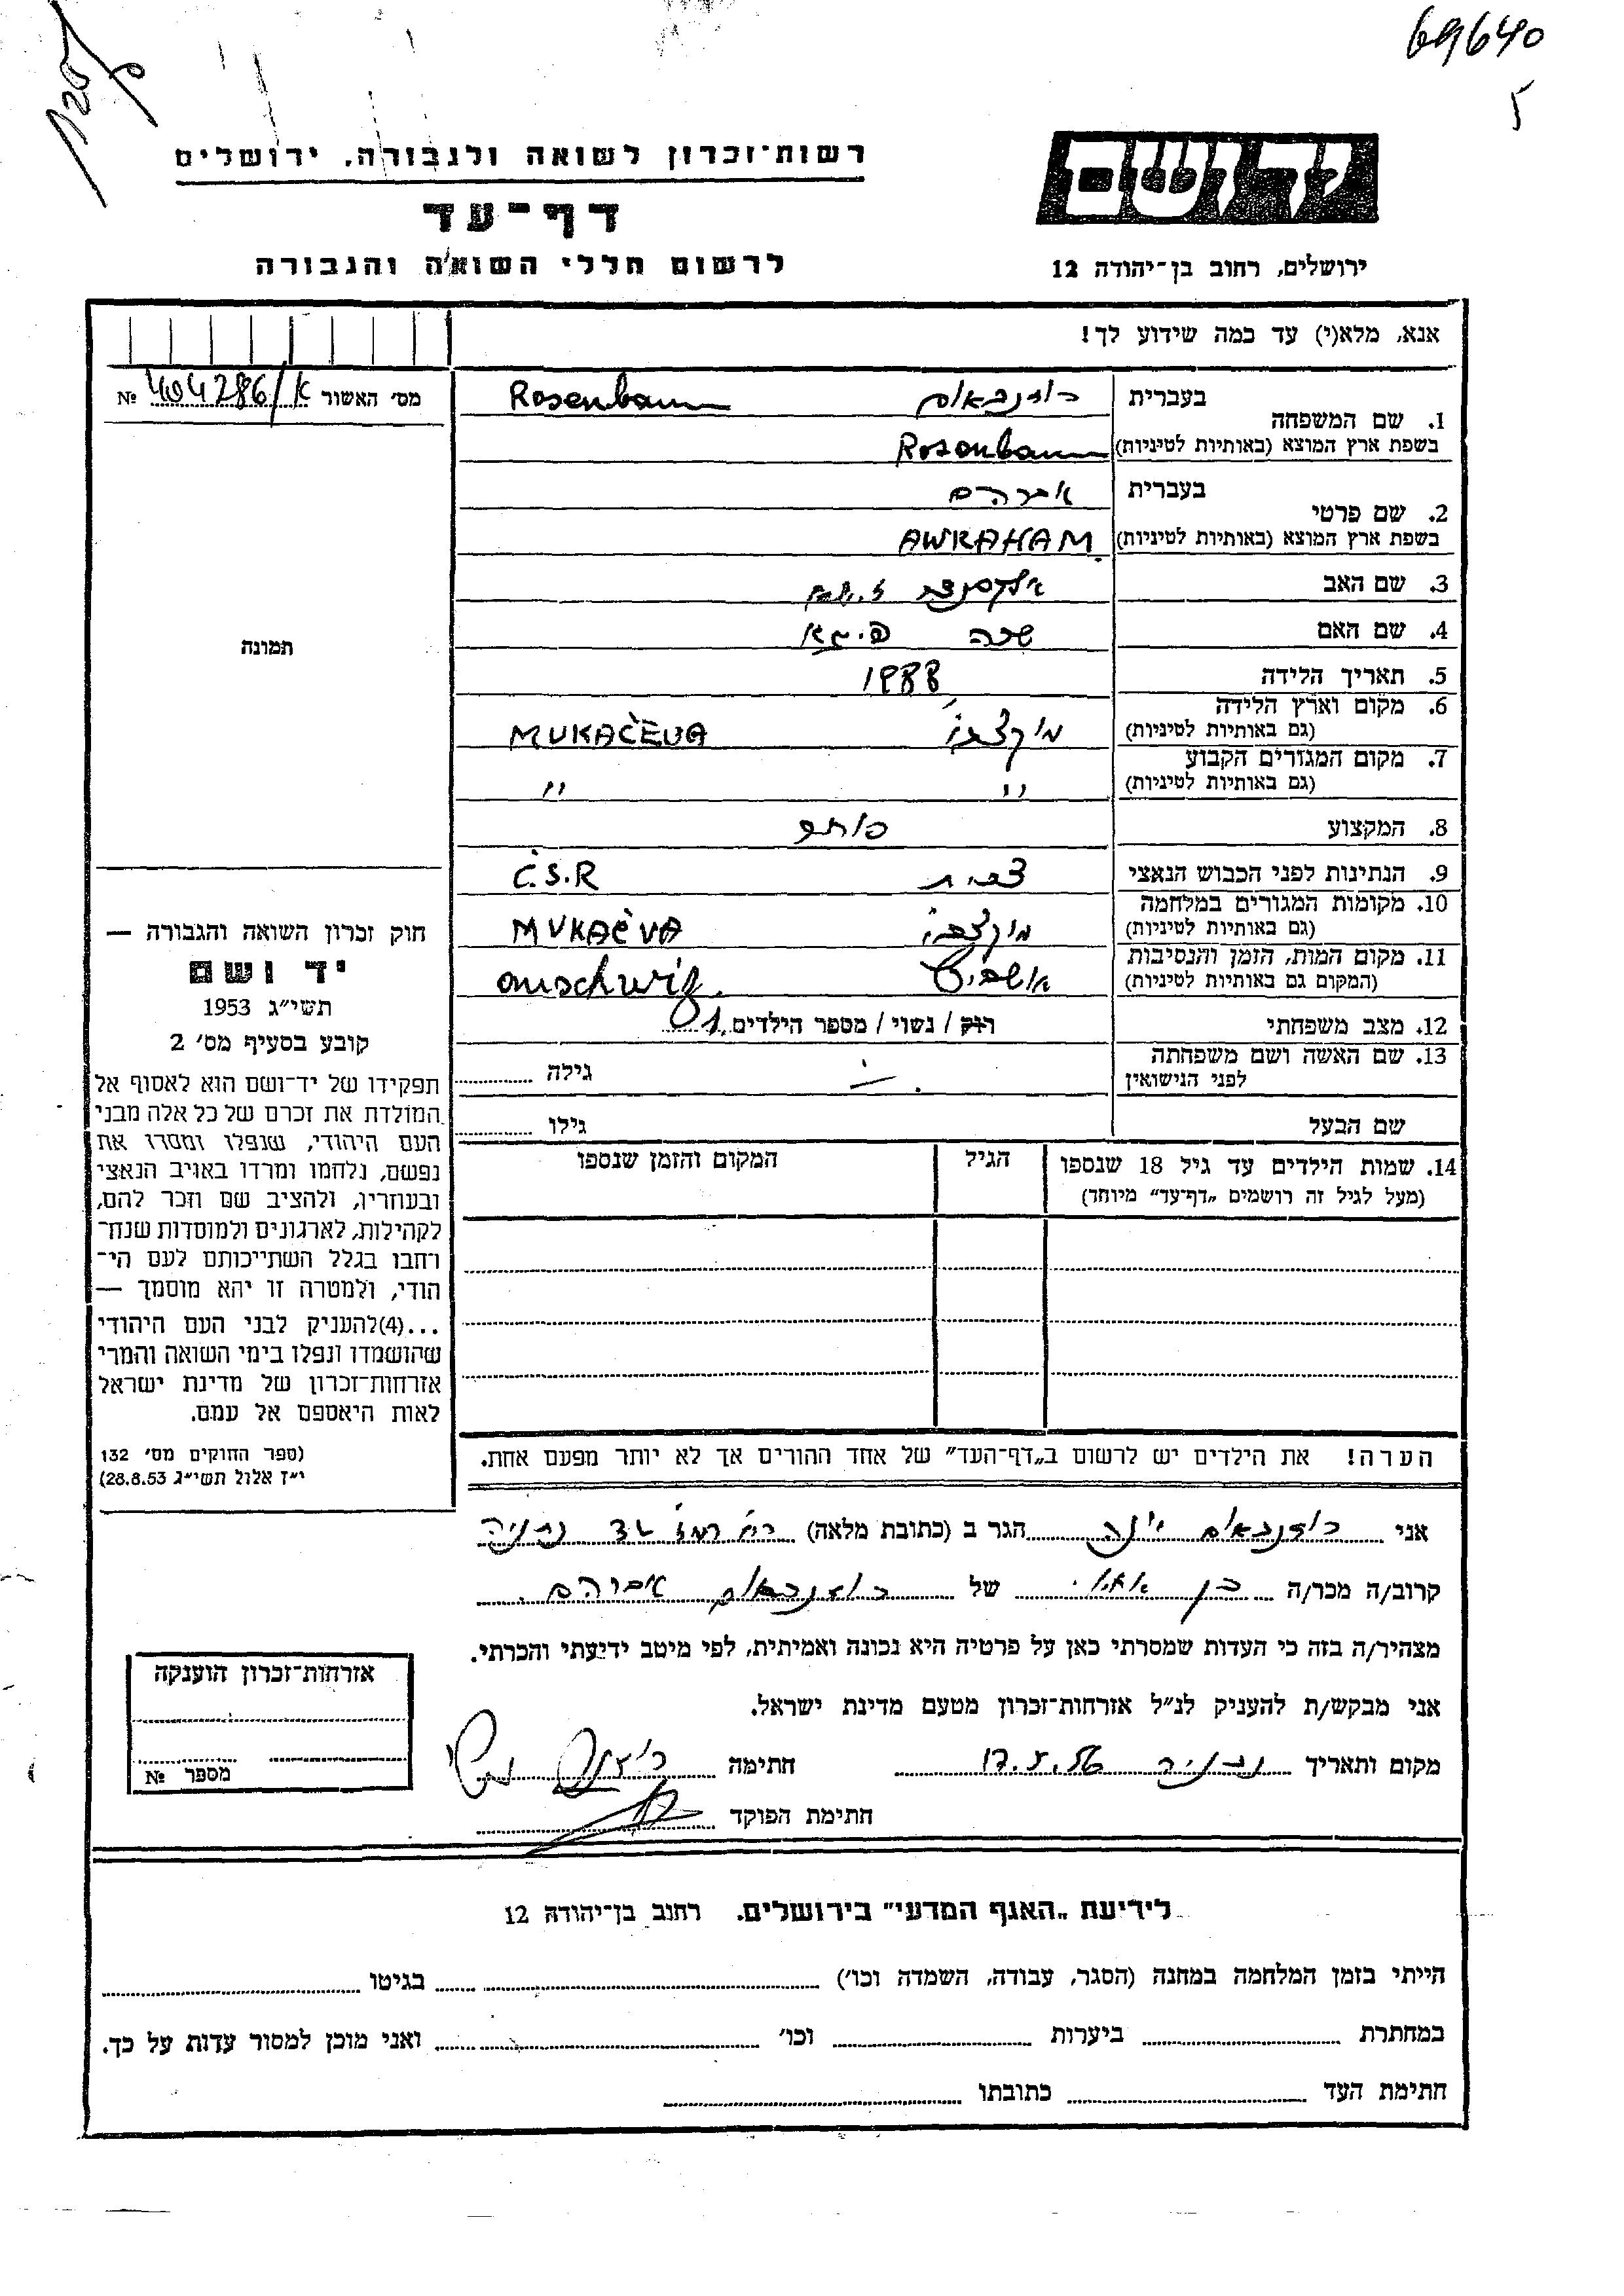 69640
5
יד ושם
ירושלים, רחוב בן־יהודה 12
רשות־זכרון לשואה ולגבורה, ירושלים
דף־עד
לרשום חללי השואה והגבורה
אנא, מלא(י) עד כמה שידוע לך!
מס׳ האשור № 404286/א
1. שם המשפחה
בעברית רוזנבאום Rosenbaum
בשפת ארץ המוצא (באותיות לטיניות) Rosenbaum
2. שם פרטי
בעברית אברהם
בשפת ארץ המוצא (באותיות לטיניות) AWRAHAM
3. שם האב אלכסנדר
4. שם האם שרה
5. תאריך הלידה 1888
6. מקום וארץ הלידה
(גם באותיות לטיניות) MUKAČEVA
7. מקום המגורים הקבוע
(גם באותיות לטיניות) " "
8. המקצוע סוחר
9. הנתינות לפני הכבוש הנאצי צכית Č.S.R
10. מקומות המגורים במלחמה
(גם באותיות לטיניות) MUKAČVA
11. מקום המות, הזמן והנסיבות
(המקום גם באותיות לטיניות) אושביץ auschwiz.
12. מצב משפחתי רוק / נשוי / מספר הילדים 1
13. שם האשה ושם משפחתה
לפני הנישואין גילה
שם הבעל גילו
14. שמות הילדים עד גיל 18 שנספו הגיל המקום והזמן שנספו
(מעל לגיל זה רושמים „דף־עד” מיוחד)
הערה! את הילדים יש לרשום ב„דף־העד” של אחד ההורים אך לא יותר מפעם אחת.
תמונה
חוק זכרון השואה והגבורה —
יד ושם
תשי״ג 1953
קובע בסעיף מס׳ 2
תפקידו של יד־ושם הוא לאסוף אל
המולדת את זכרם של כל אלה מבני
העם היהודי, שנפלו ומסרו את
נפשם, נלחמו ומרדו באויב הנאצי
ובעוזריו, ולהציב שם וזכר להם,
לקהילות, לארגונים ולמוסדות שנח־
רחבו בגלל השתייכותם לעם הי־
הודי, ולמטרה זו יהא מוסמך —
...(4)להעניק לבני העם היהודי
שהושמדו ונפלו בימי השואה והמרי
אזרחות־זכרון של מדינת ישראל
לאות היאספם אל עמם.
(ספר החוקים מס׳ 132
י״ז אלול תשי״ג 28.8.53)
אני רוזנבאום יונה הגר ב (כתובת מלאה) נתניה
קרוב/ה מכר/ה בן של רוזנבאום אברהם
מצהיר/ה בזה כי העדות שמסרתי כאן על פרטיה היא נכונה ואמיתית, לפי מיטב ידיעתי והכרתי.
אני מבקש/ת להעניק לנ״ל אזרחות־זכרון מטעם מדינת ישראל.
מקום ותאריך נתניה 17.5.56 חתימה
חתימת הפוקד
אזרחות־זכרון הוענקה
מספר №
לידיעת „האגף המדעי” בירושלים. רחוב בן־יהודה 12
הייתי בזמן המלחמה במחנה (הסגר, עבודה, השמדה וכו׳) בגיטו
במחתרת ביערות וכו׳ ואני מוכן למסור עדות על כך.
חתימת העד כתובתו